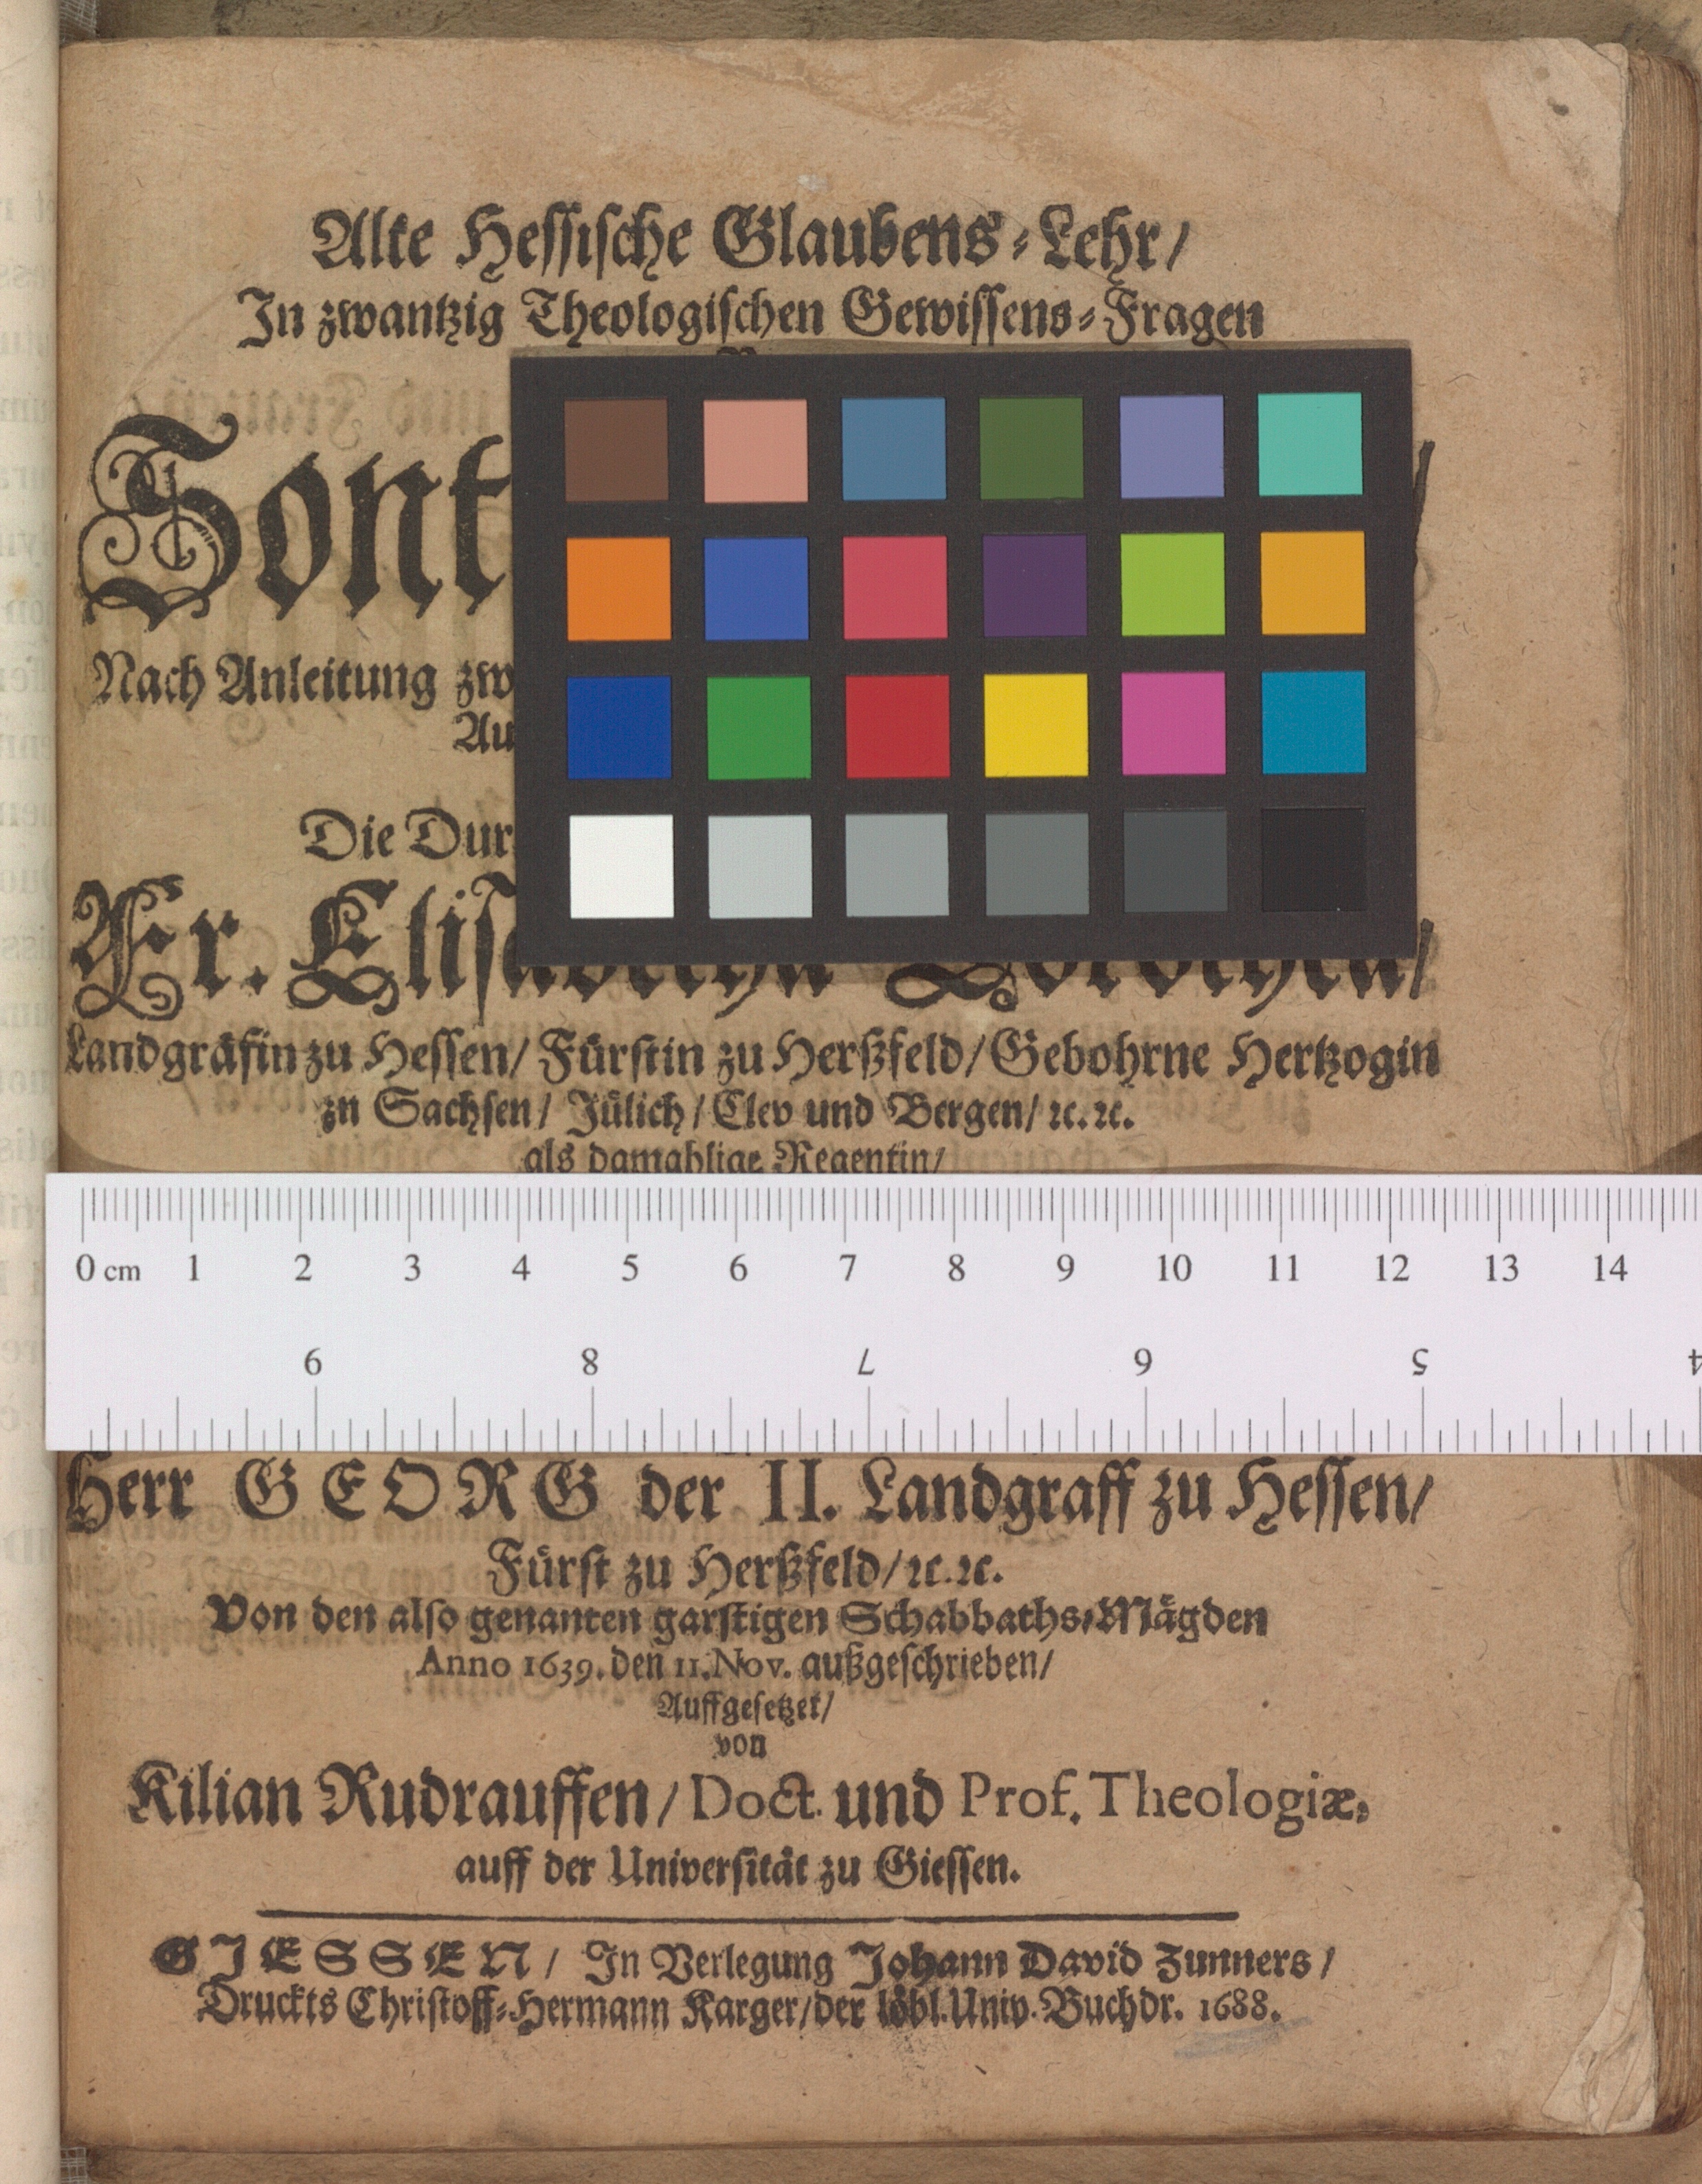 Alte Hessische Glaubens-Lehr/
In zwantzig Theologischen Gewissens-Fragen
Nach Anleitung
Die
Fr. Elisabetha Dorothea/
Landgräfin zu Hessen/ Fürstin zu Herßfeld/ Gebohrne Hertzogin
zu Sachsen/ Jülich/ Clev und Bergen/ ꝛc. ꝛc.
als damahlige Regentin/
0 cm 1 2 3 4 5 6 7 8 9 10 11 12 13 14
9 8 7 6 5 4
Herr GEORG der II. Landgraff zu Hessen/
Fürst zu Herßfeld/ ꝛc. ꝛc.
Von den also genanten garstigen Schabbaths-Mägden
Anno 1639. den 11. Nov. außgeschrieben/
Auffgesetzet/
von
Kilian Rudrauffen/ Doct. und Prof. Theologiæ,
auff der Universität zu Giessen.
GIESSEN/ In Verlegung Johann David Zunners/
Druckts Christoff-Hermann Karger/ der löbl. Univ. Buchdr. 1688.